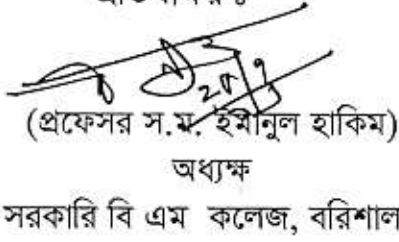 (প্রফেসর স.ম. ইমানুল হাকিম)
অধ্যক্ষ
সরকারি বি এম কলেজ, বরিশাল